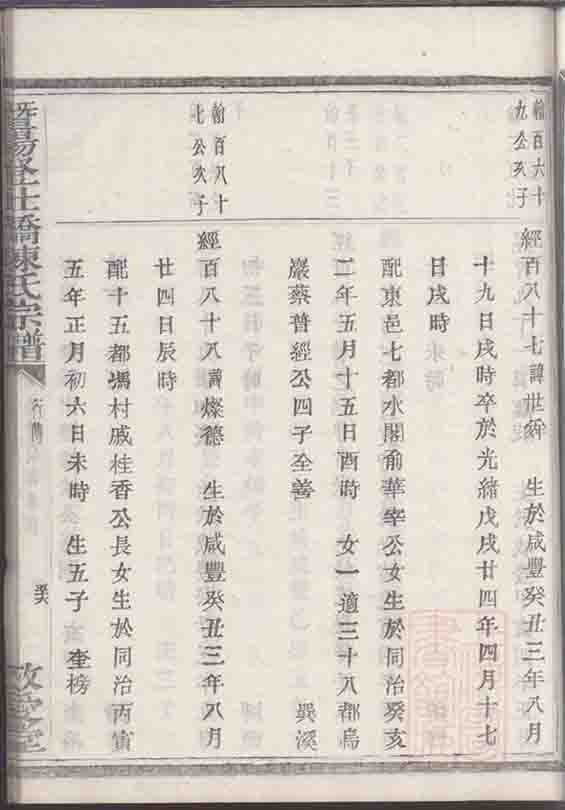 翰百六十
九公次子
經百八十七諱世絳 生於咸豐癸丑三年八月
十九日戌時卒於光緒戊戌廿四年四月十七
日戌時
配東邑七都水閣俞華宰公女生於同治癸亥
二年五月十五日酉時 女一適三十八都烏
巖蔡普經公四子全善 吳溪
翰百八十
北公次子
經百八十八諱燦德 生於咸豐癸丑三年八月
廿四日辰時
配十五都塢村戚桂香公長女生於同治丙寅
五年正月初六日未時 生五子 奎榜
暨陽 仕橋陳氏宗譜
行傳
敦 堂